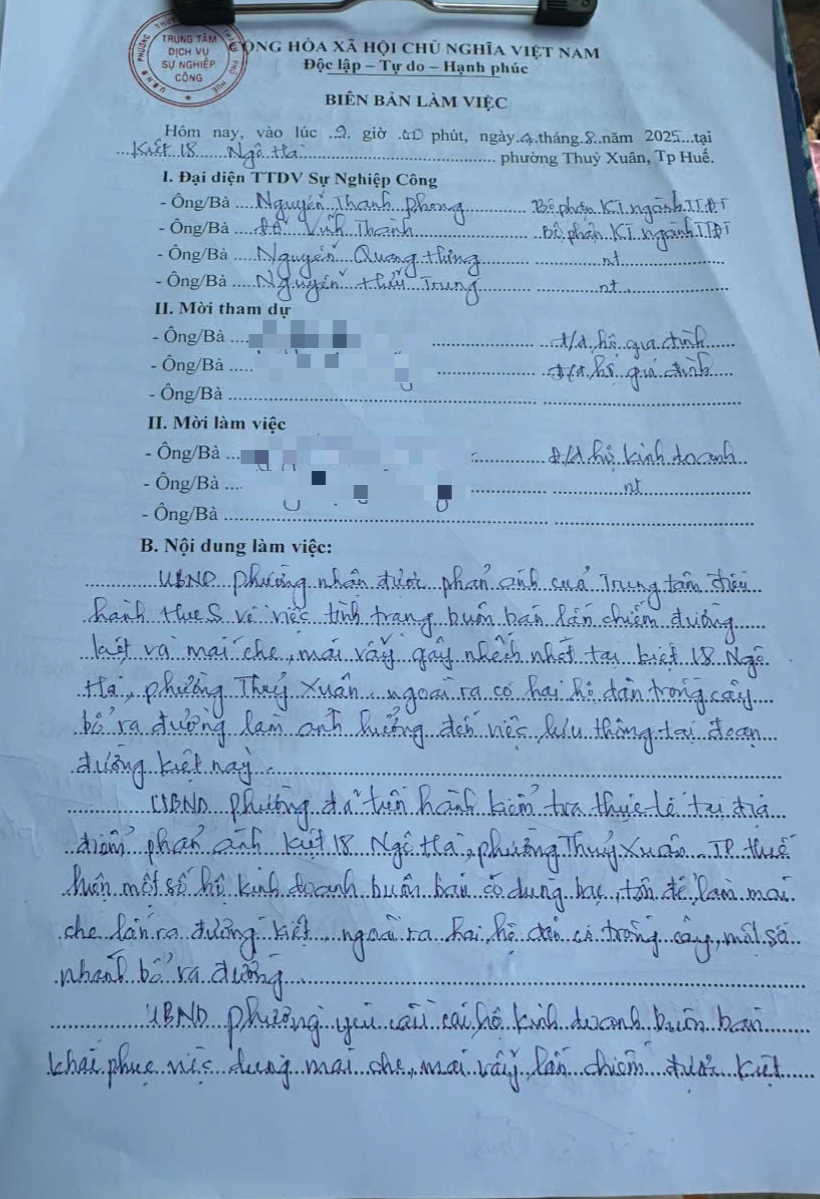 TRUNG TÂM
DỊCH VỤ
SỰ NGHIỆP
CÔNG
CỘNG HÒA XÃ HỘI CHỦ NGHĨA VIỆT NAM
Độc lập – Tự do – Hạnh phúc
BIÊN BẢN LÀM VIỆC
Hôm nay, vào lúc 9 giờ 00 phút, ngày 4 tháng 8 năm 2025 tại
Kiệt 18 Ngô Hà phường Thuỷ Xuân, Tp Huế.
I. Đại diện TTDV Sự Nghiệp Công
- Ông/Bà Nguyễn Thanh Phong Bộ phận KT ngành TTĐT
- Ông/Bà Đỗ Vĩnh Thành Bộ phận KT ngành TTĐT
- Ông/Bà Nguyễn Quang nt
- Ông/Bà Nguyễn Trung nt
II. Mời tham dự
- Ông/Bà Đ/d hộ gia đình
- Ông/Bà Đ/d hộ gia đình
- Ông/Bà
II. Mời làm việc
- Ông/Bà Đ/d hộ kinh doanh
- Ông/Bà nt
- Ông/Bà
B. Nội dung làm việc:
UBND phường nhận được phản ánh của Trung tâm điều
hành HueS về việc tình trạng buôn bán lấn chiếm đường
kiệt và mái che, mái vẩy gây nhếch nhát tại kiệt 18 Ngô
Hà, phường Thuỷ Xuân. ngoài ra có hai hộ dân trồng cây
bổ ra đường làm ảnh hưởng đến việc lưu thông tại đoạn
đường kiệt này.
UBND phường đã tiến hành kiểm tra thực tế tại địa
điểm phản ánh kiệt 18 Ngô Hà, phường Thuỷ Xuân TP Huế
hiện một số hộ kinh doanh buôn bán có dùng bạc, tôn để làm mái
che lấn ra đường kiệt, ngoài ra hai hộ dân có trồng cây, một số
nhánh bổ ra đường
UBND phường yêu cầu các hộ kinh doanh buôn bán
khắc phục việc dùng mái che, mái vẩy, lấn chiếm được kiệt